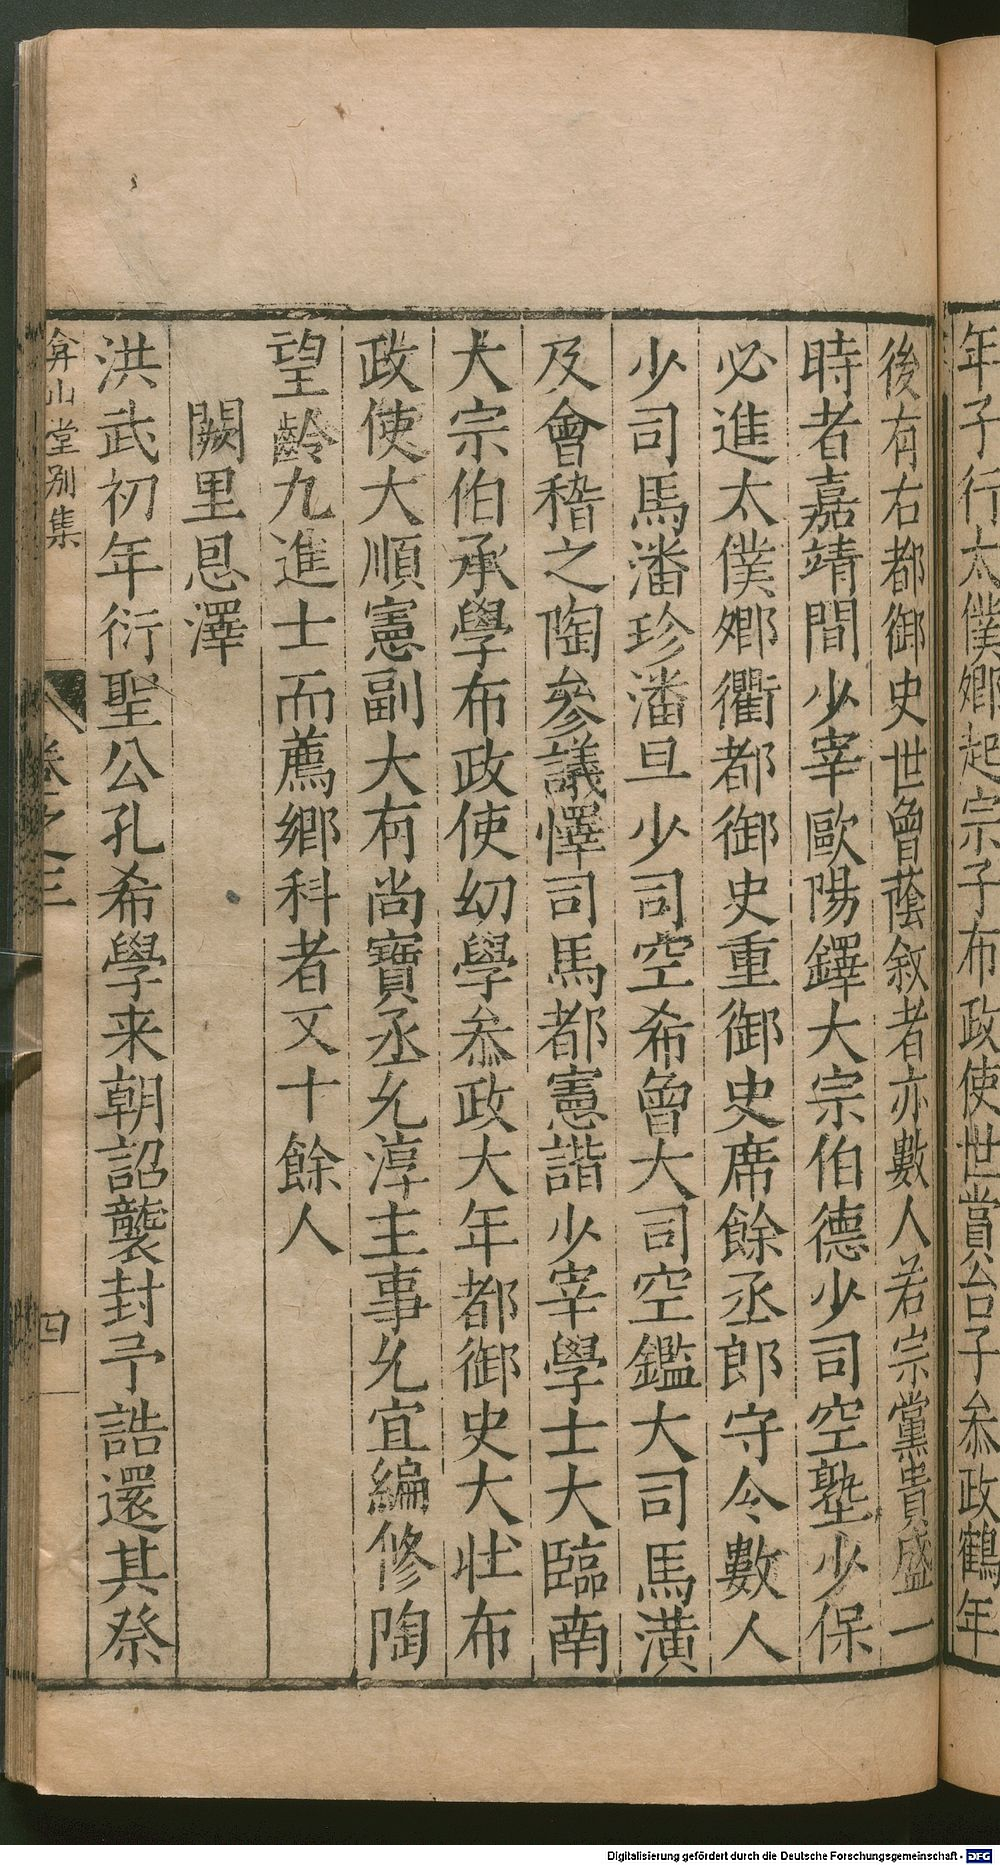 年子行太僕卿起宗子布政使世賞台子叅政鶴年
後有右都御史世曾蔭敘者亦數人若宗黨貴盛一
時者嘉靖間少宰歐陽鐸大宗伯德少司空塾少保
必進太僕卿衢都御史重御史席餘丞郎守令數人
少司馬潘珍潘旦少司空希曾大司空鑑大司馬潢
及會稽之陶參議懌司馬都憲諧少宰學士大臨南
大宗伯承學布政使幼學叅政大年都御史大壯布
政使大順憲副大有尚寶丞允淳主事允宜編修陶
望齡九進士而薦鄉科者又十餘人
闕里恩澤
洪武初年衍聖公孔希學来朝詔襲封予誥還其祭
弇山堂别集
卷之三
四
Digitalisierung gefördert durch die Deutsche Forschungsgemeinschaft - DFG